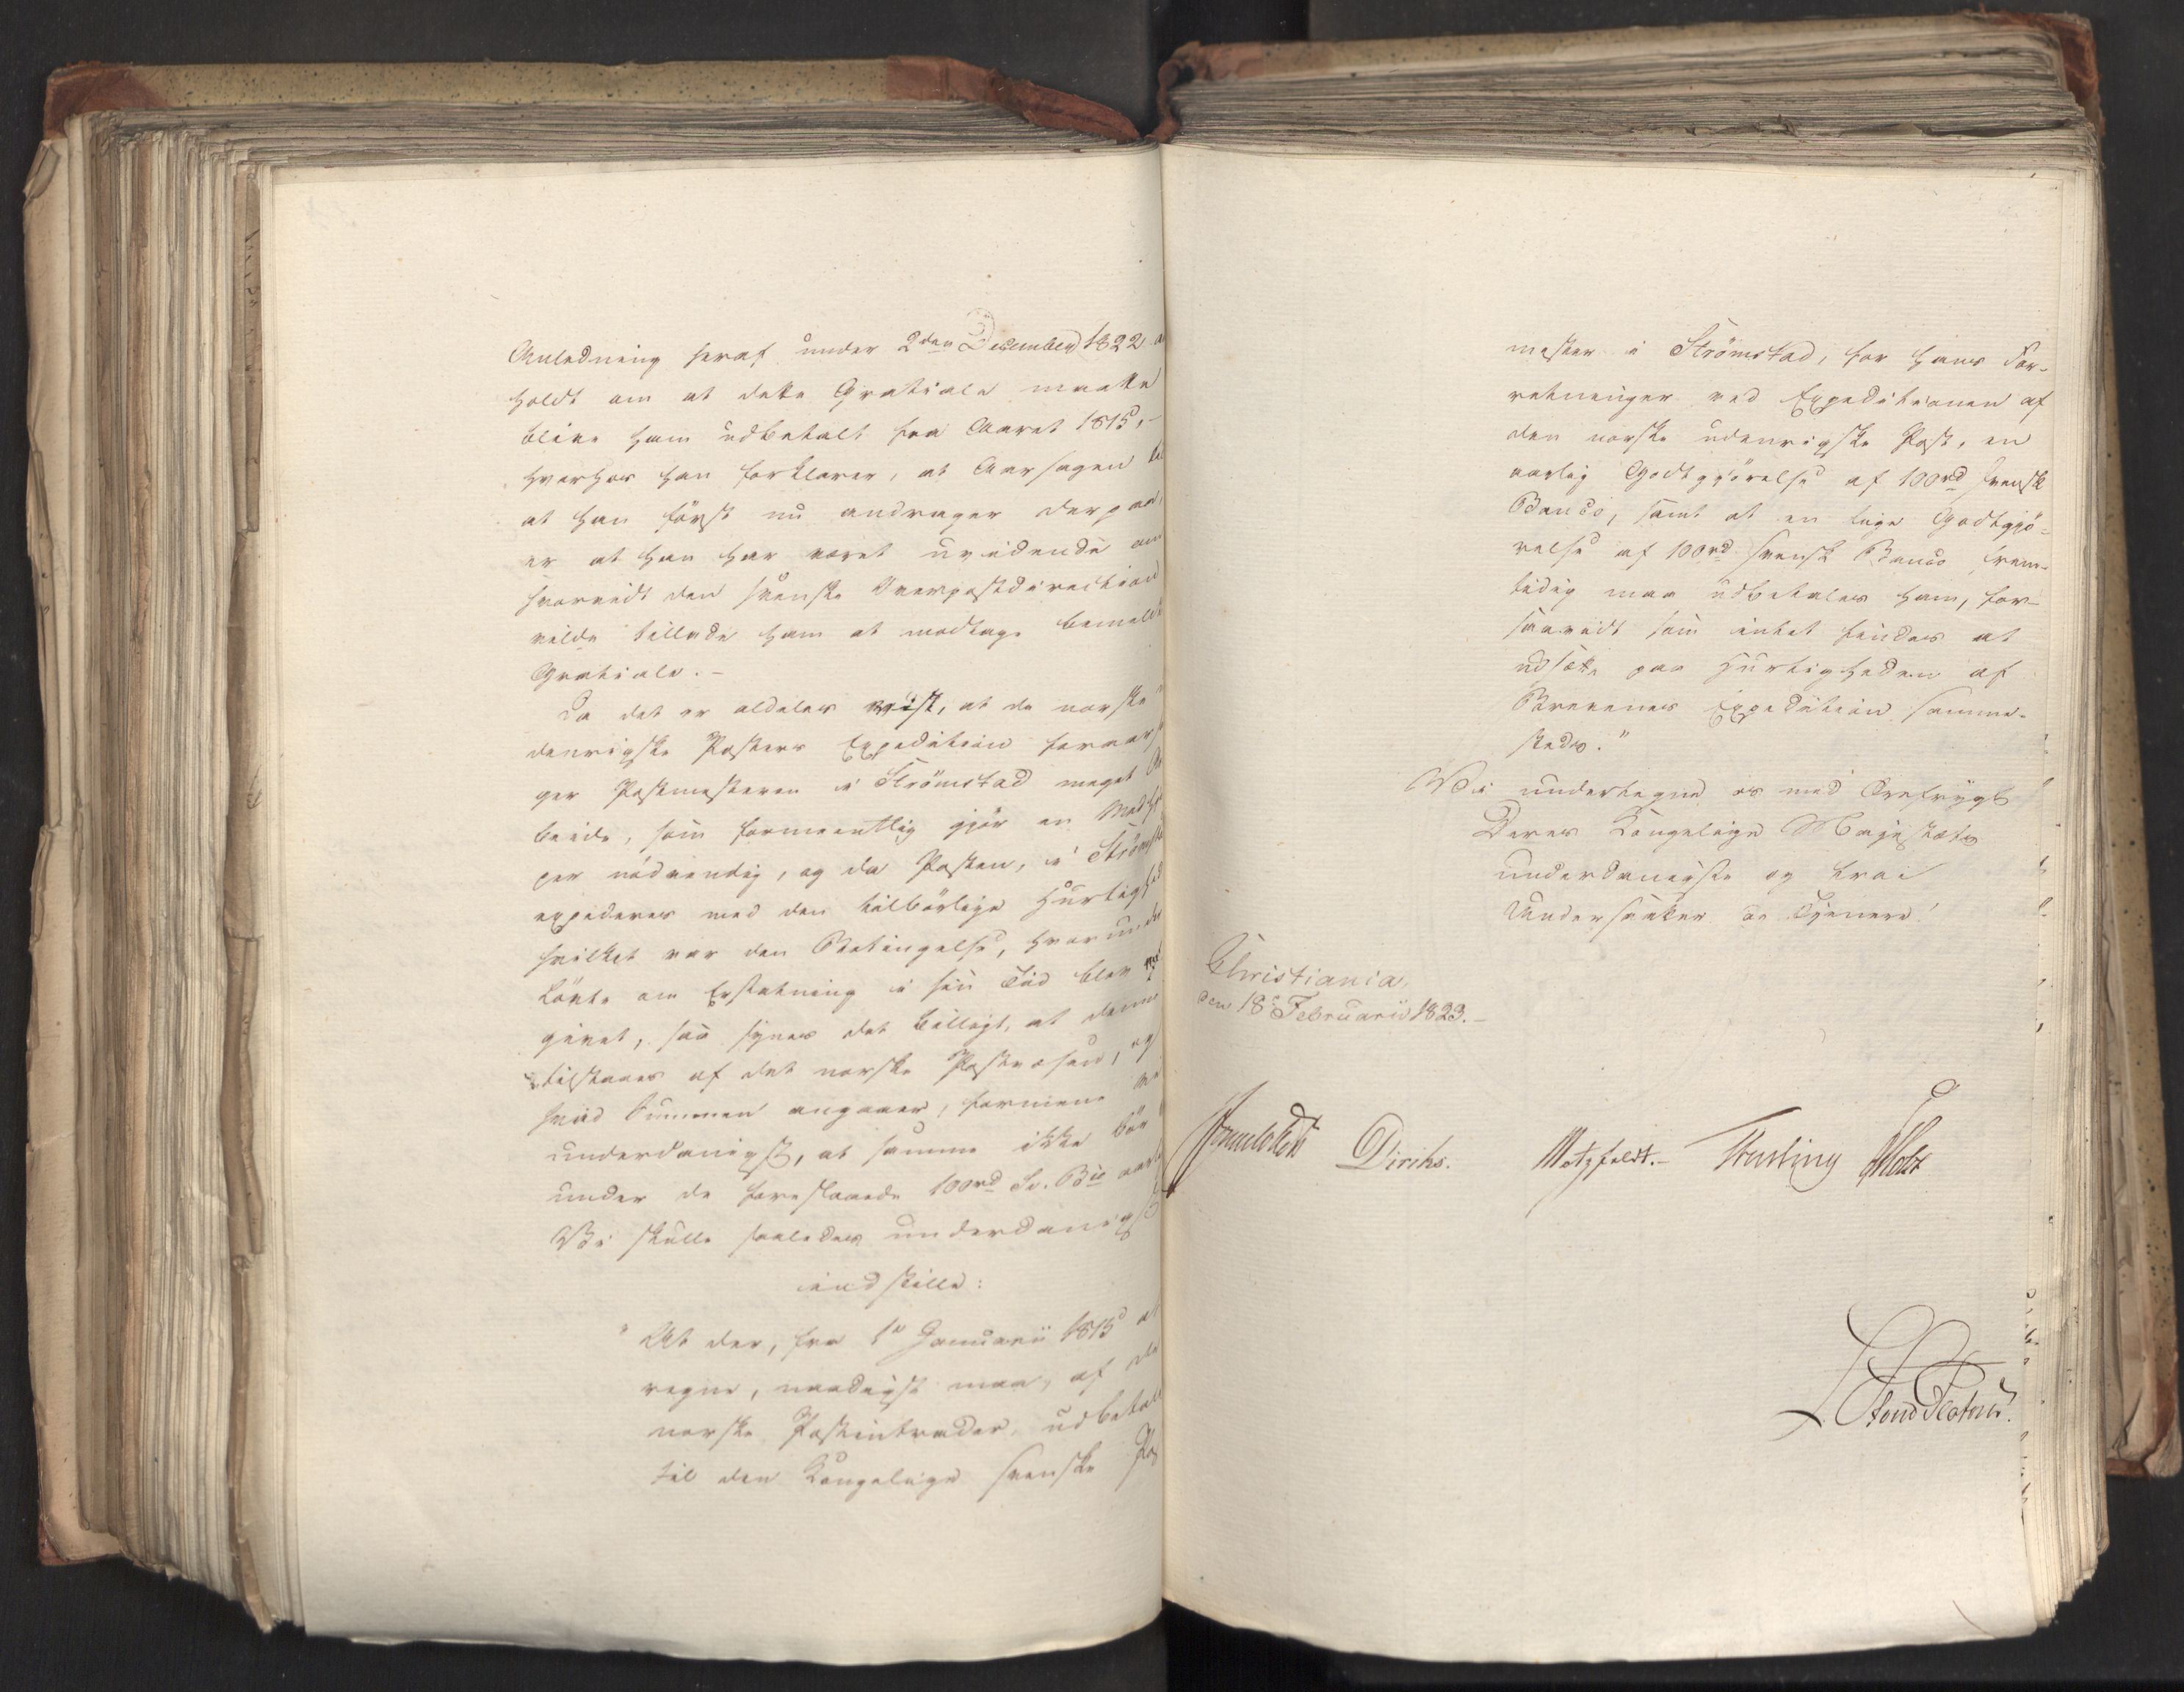 Anledning heraf under 2den December 1822 a
holdt om at dette Gratiale maatte
blive ham udbetalt fra Aaret 1815,-
hvorhos han forklarer, at Aarsagen til
at han först nu andrager derpaa,
er at han har været uvidende om
hvorvidt den svenske Overpostdirection
vilde tillade ham at modtage bemeldte
Gratiale.-
Da det er aldeles vist, at de norske
denrigske Posters Expedition foraarsa
ger Postmesteren i Strömstad meget Ar
beide, som formeentlig gjör en Medhjæl
per nödvendig, og da Posten, i Strömsta
expederes med den tilbörlige Hurtighed
hvilket var den Betingelse, hvorunder
Löfte om Erstatning i sin Tid blev
givet, saa synes det billigt, at denne
tilstaaes af det norske Postvæsen, og
hvad Summen angaaer, formene
underdanigst, at samme ikke bör
under de foreslaaede 100rd Sv. Bco aarl
Vi skulle saaledes underdanigst
indstille:
"At der, fra 1e Januarii 1815 at
regne, naadigst maa, af de
norske Postintrader, udbetal
til den Kongelige svenske Pos
mester i Strömstad, for hans For-
retninger ved Expeditionen af
den norske udenrigske Post, en
aarlig Godtgjörelse af 100rd svensk
Banco, samt at en lige Godtgjö-
relse af 100rd svensk Banco frem-
tidig maa udbetales ham, for-
saavidt som intet findes at
udsætte paa Hurtigheden af
Brevenes Expedition samme-
steds."
Vi undertegne os med Ærefrygt
Deres Kongelige Majestæts
underdanigste og troe
Undersaatter og Tjenere!
Christiania,
den 18e Februarii 1823.-
Diriks.
Motzfeldt.-
Treschow
Holst